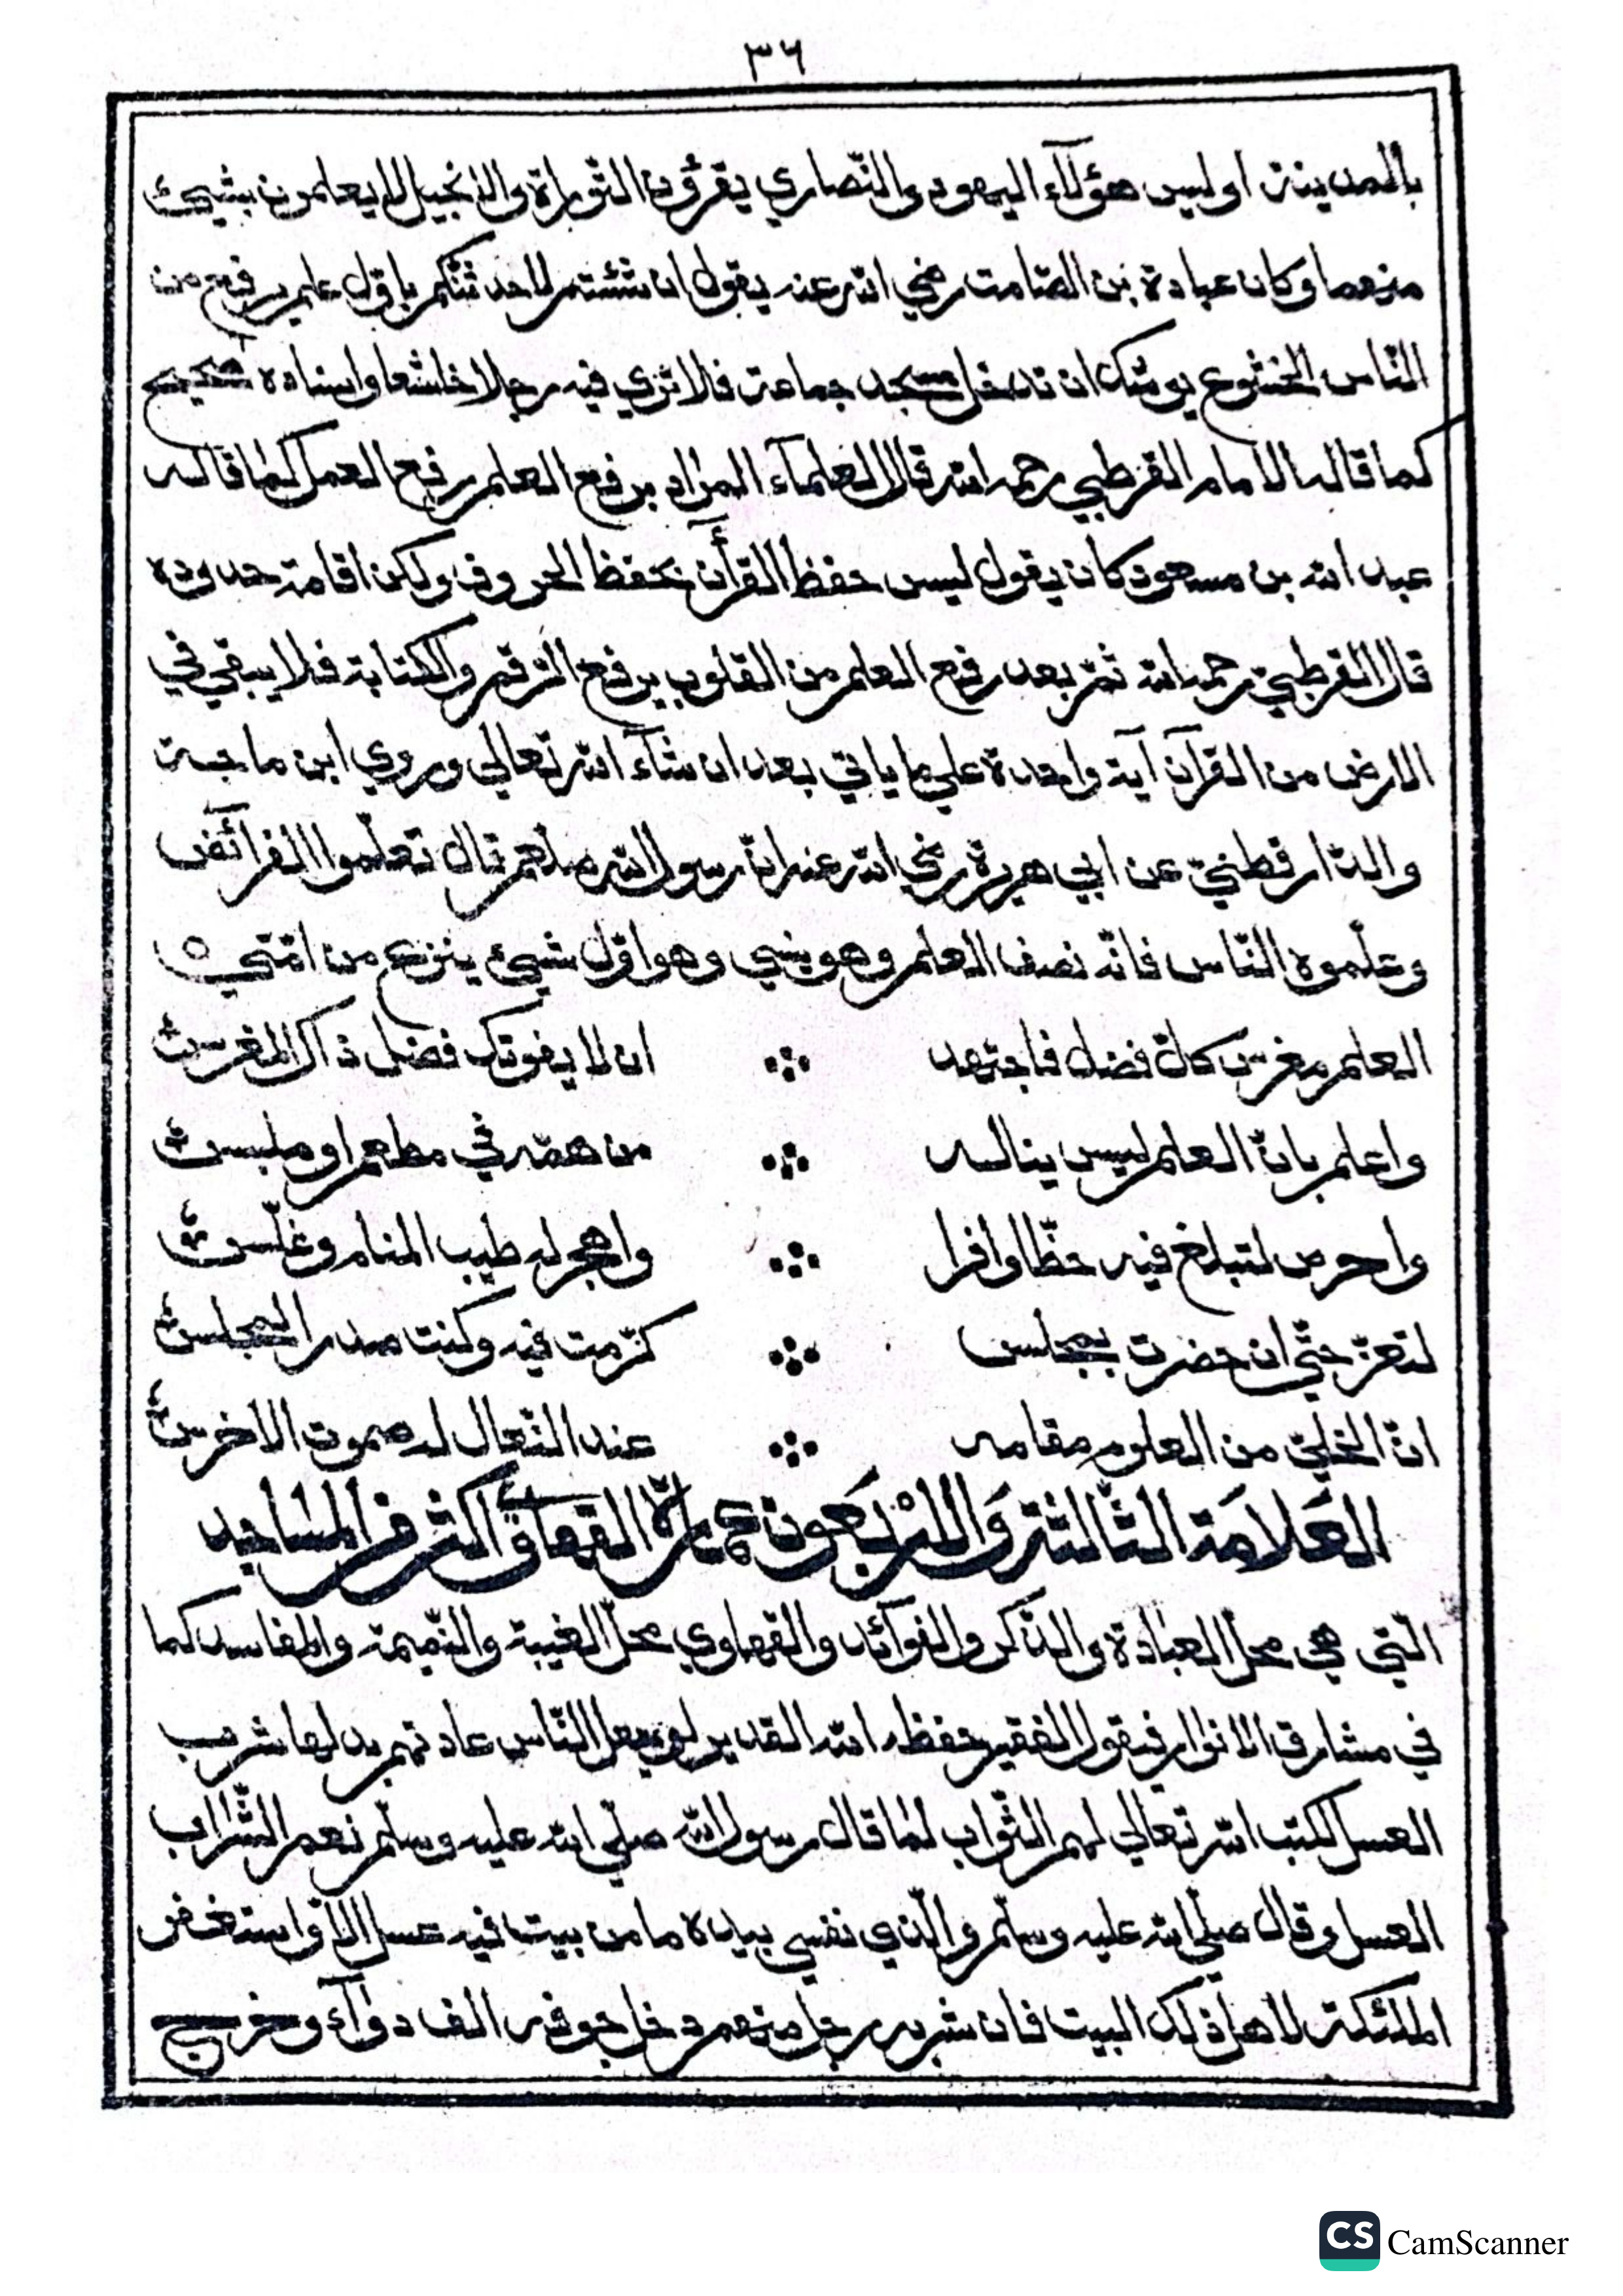 ٣٦
بالمدينة اوليس هؤلآء اليهود والنّصاري يقرؤن التّوراة والانجيل لا يعلمون بشيئ
منهما وكان عبادة بن الصّامت رضي الله عنه يقول ان شئتم لاحدثنّكم باوّل علم يرفع من
النّاس الخشوع يوشك ان تدخل مسجد جماعة فلا تري فيه رجلا خاشعا واسناده صحيح
كما قاله الامام القرطبي رحمه الله قال العلمآء المراد برفع العلم رفع العمل كما قاله
عبد الله بن مسعود كان يقول ليس حفظ القرأن بحفظ الحروف ولكن اقامة حدوده
قال القرطبيّ رحمه الله ثمّ بعد رفع العلم من القلوب يرفع الرّقم والكتابة فلا يبقي في
الارض من القرآن آية واحدة علي ما ياتي بعد ان شآء الله تعالي وروي ابن ماجة
والدّارقطنيّ عن ابي هريرة رضي الله عنه انّ رسول الله صلعم قال تعلّموا الفرآئض
وعلّموه النّاس فانّه نصف العلم وهو ينسي وهو اوّل شيئ ينزع من امّتي ه
العلم مغرس كلّ فضل فاجتهد ان لا يفوتك فضل ذاك المغرس
واعلم بانّ العلم ليس يناله من همّه في مطعم او ملبس
واحرص لتبلغ فيه حظّا وافرا واهجر له طيب المنام وغلّس
لتعزّ حتّي ان حضرت بمجلس كرّمت فيه وكنت صدر المجلس
انّ الخليّ من العلوم مقامه عند النّعال له صموت الاخرس
العلامة الثّالثة والاربعون عمارة القهاوي اكثر من المساجد
الّتي هي محلّ العبادة والذّكر والفوآئد والقهاوي محلّ الغيبة والنّميمة والمفاسد كما
في مشارق الانوار فيقول الفقير حفظه الله القدير لو يجعل النّاس عادتهم بدلها شرب
العسل لكتب الله تعالي لهم الثّواب لما قال رسول الله صلّي الله عليه وسلّم نعم الشّراب
العسل وقال صلّي الله عليه وسلّم والّذي نفسي بيده ما من بيت فيه عسل الا واستغفر
الملئكة لاهل ذلك البيت فان شربه رجل منهم دخل جوفه الف دوآء وخرج
CS CamScanner